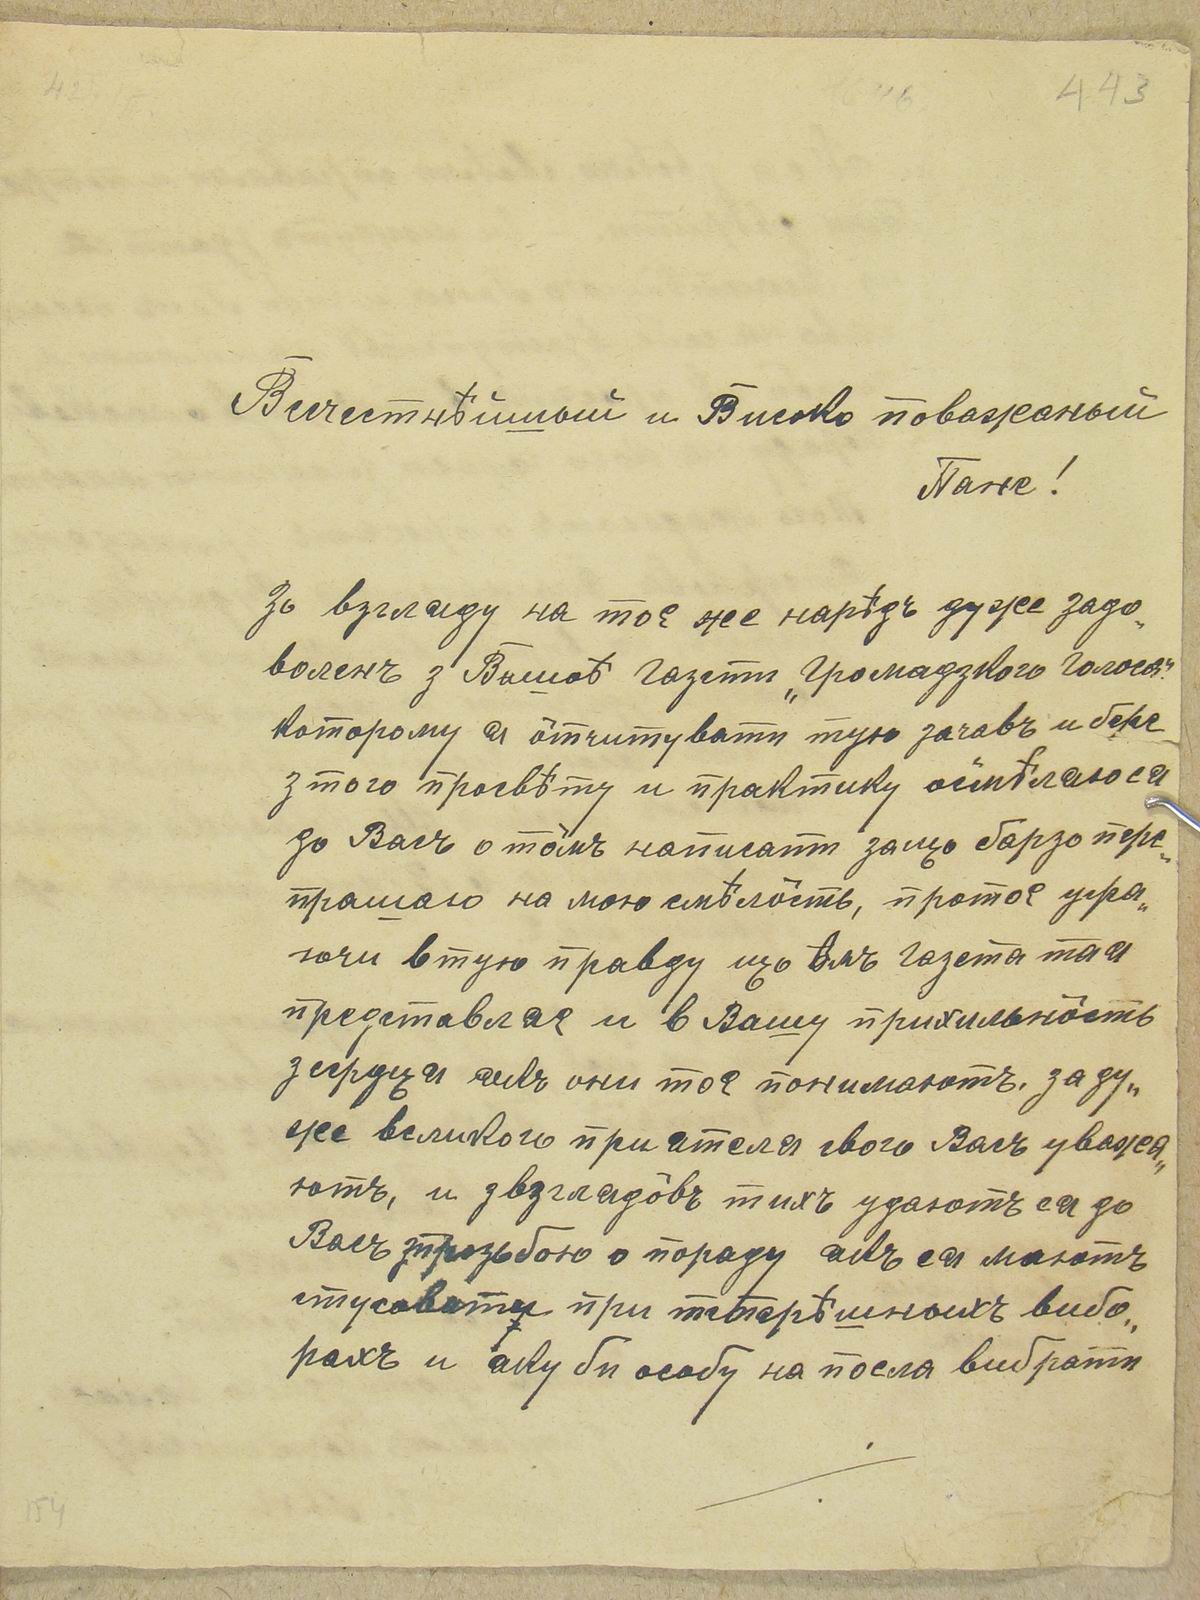 443
Вичестнѣйшый и Високо поважаный
Пане!
Зъ взгляду на тое же нарѣдъ дуже задо„
воленъ з Вашоѣ газети „Громадзкого Голоса"
которому я ôтчитувати тую зачавъ и бере
з того просвѣту и практику осїмѣляюся
до Васъ о тôмъ написати защо барзо пере„
прашаю на мою смѣлôсть, протое уфа„
ючи в тую правду що ѣмъ газета тая
представляе и в Вашу прихильнôсть
з сердця якъ они тое понимаютъ. за ду„
же великого приятеля свого Васъ уважа„
ютъ, и з взглядôвъ тихъ удаютъ ся до
Васъ з прозьбою о пораду якъ ся маютъ
стусовати при теперѣшныхъ вибо„
рахъ и яку би особу на посла вибрати
154